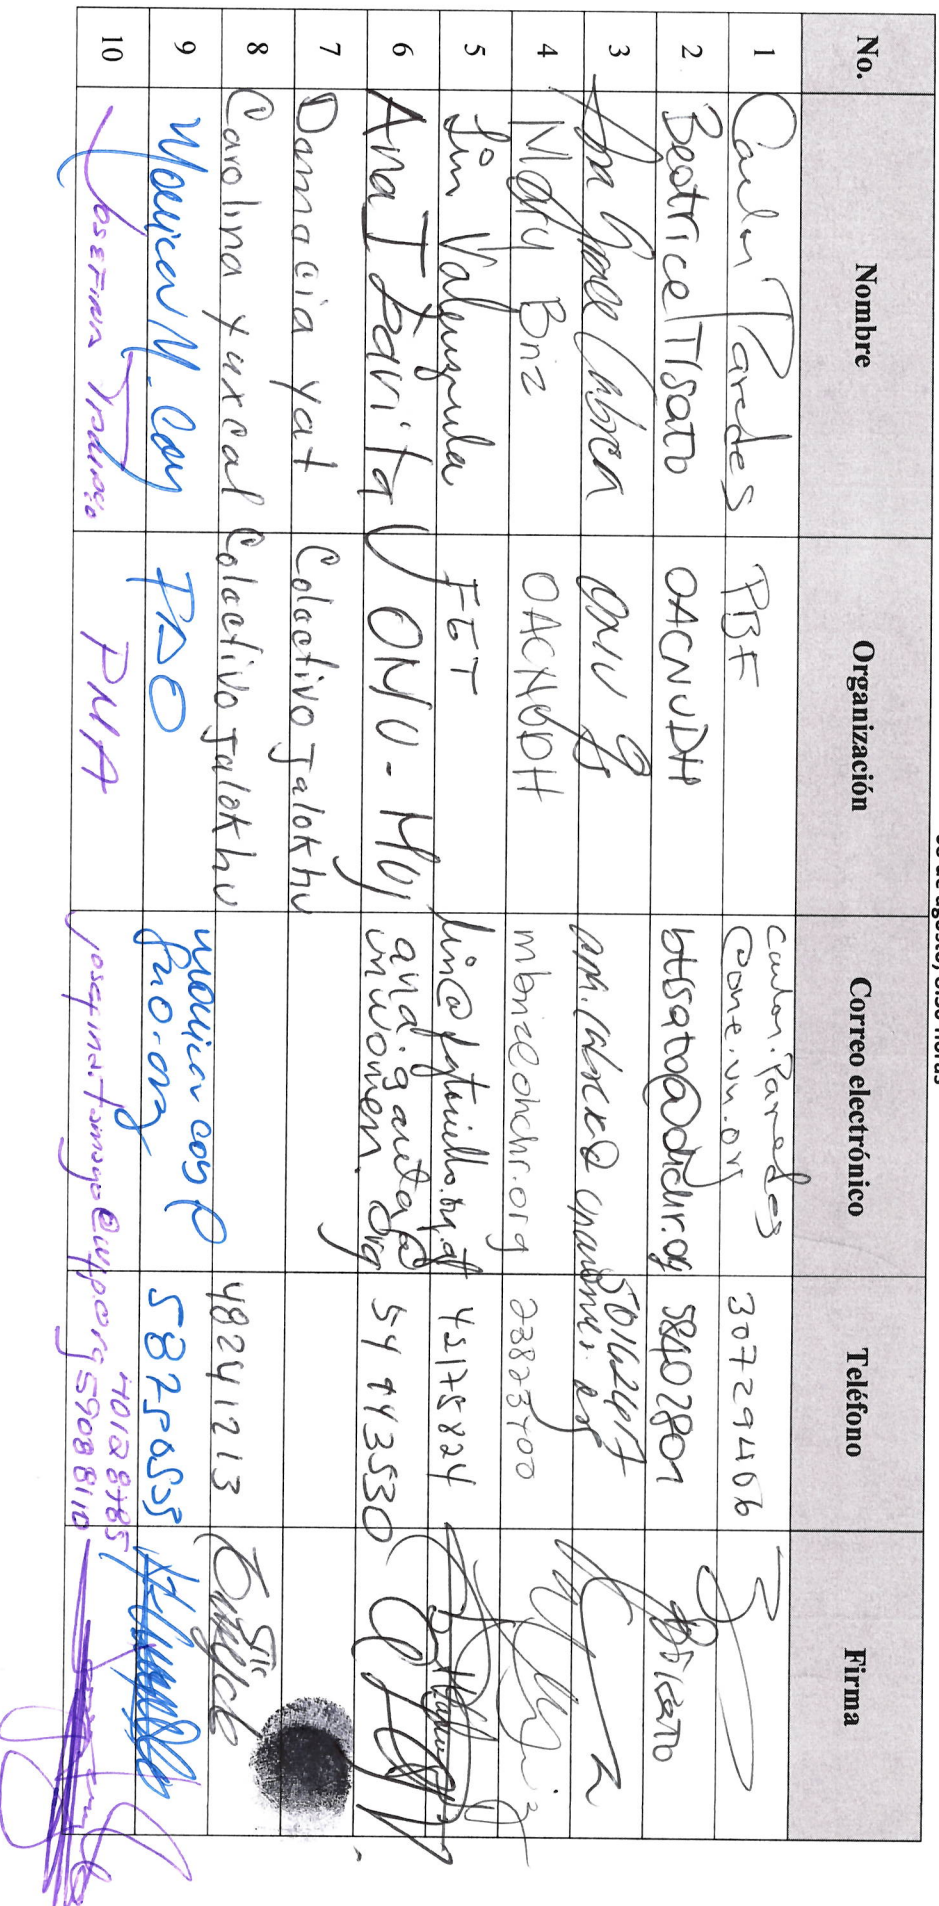 No. Nombre Organización Correo electrónico Teléfono Firma
1 Carlos Paredes PBF carlos.paredes
@one.un.org 30729466
2 Beatrice Tisato OACNUDH btisato@ohchr.org 58402801 BTisato
3 Ana Grace Cabrera ONU
4 Mary Briz OACNUDH mbriz@ohchr.org 23823400
5 Lin Valenzuela FGT 42175824
6 Ana I Garita ONU-Muj
unwomen.org 54943530
7 Damacia yat Colectivo Jalokhu
8 Carolina yuxcal Colectivo Jalokhu 48241213
9 Monica M. Coy FAO monica.coy@
fao.org
10 Josefina Tamayo PMA josefina.tamayo@wfp.org 59088110